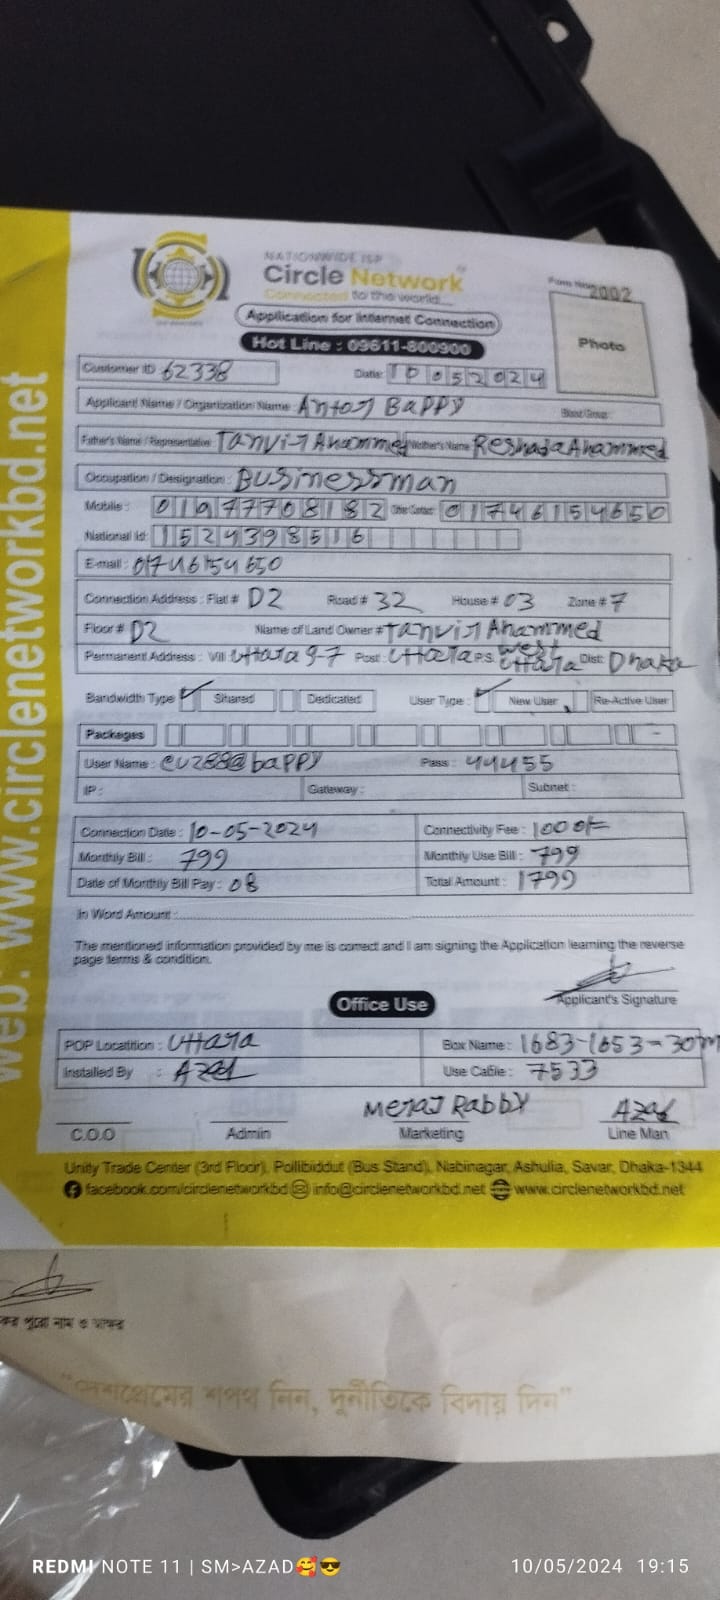 NATIONWIDE ISP
Circle Network
Connected to the world...
Application for Internet Connection
Hot Line : 09611-800900
2002
Photo
Customer ID 62338
Date: 10052024
Applicant Name / Organization Name: Antor Bappy
Father's Name / Representative: Tanvir Ahammed Mother's Name Reshada Ahammed
Occupation / Designation: Businessman
Mobile: 01977708182 01746154650
National Id: 1524398516
E-mail: 01746154650
Connection Address : Flat # D2 Road # 32 House # 03 Zone # 7
Floor # D2 Name of Land Owner # Tanvir Ahammed
Permanent Address : Vill Uttara 9-7 Post : Uttara P.S. West Uttara Dist: Dhaka
Bandwidth Type Shared Dedicated User Type : New User Re-Active User
Packages
User Name : Pass : 44455
IP : Gateway : Subnet :
Connection Date : 10-05-2024 Connectivity Fee : 1000/=
Monthly Bill : 799 Monthly Use Bill : 799
Date of Monthly Bill Pay : 08 Total Amount : 1799
In Word Amount :
The mentioned information provided by me is correct and I am signing the Application learning the reverse
page terms & condition.
Applicant's Signature
Office Use
POP Locatition : Uttara Box Name : 1683-1653-30m
Installed By : Azad Use Cable : 7533
Meraj Rabby Azad
C.O.O Admin Marketing Line Man
Unity Trade Center (3rd Floor), Pollibiddut (Bus Stand), Nabinagar, Ashulia, Savar, Dhaka-1344
facebook.com/circlenetworkbd info@circlenetworkbd.net www.circlenetworkbd.net
web: www.circlenetworkbd.net
পুরো নাম ও স্বাক্ষর
"দেশপ্রেমের শপথ নিন, দুর্নীতিকে বিদায় দিন"
REDMI NOTE 11 | SM>AZAD🥰😎
10/05/2024 19:15